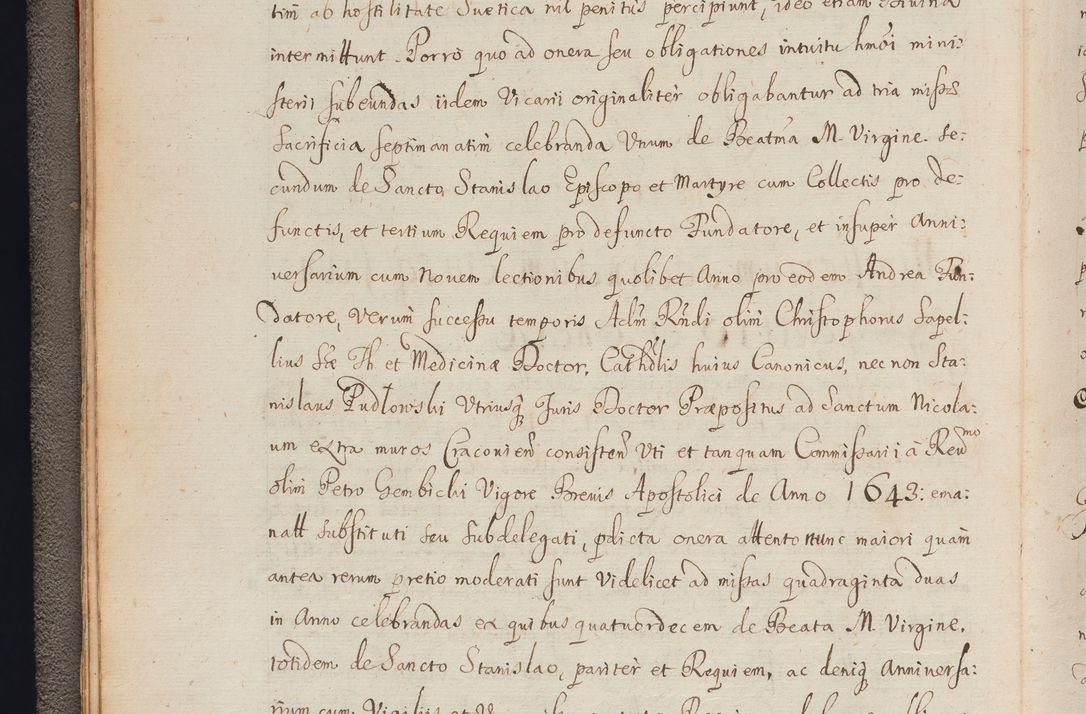 tim ab hostilitate Suetica nil penitus percipiunt, ideo etiam
intermittunt. Porro quo ad onera seu obligationes intuitu hmoi mini:
sterii subeundas iidem Vicarii originaliter obligabantur ad tria missæ
Sacrificia septimanatim celebranda Unum de Beatma M. Virgine. Se:
cundum de Sancto Stanislao Episcopo et Martyre cum Collectis pro de:
functis, et tertium Requiem pro defuncto Fundatore, et insuper Anni:
versarium cum Novem lectionibus quolibet Anno pro eodem Andrea Fun:
datore, Verum successu temporis Adm Rndi olim Christophorus Sapel:
lius Stæ Th. et Medicinæ Doctor, Cathdlis huius Canonicus, nec non Sta:
nislaus Pudłowski Utriusq Juris Doctor Præpositus ad Sanctum Nicola:
um extra muros Cracovien consisten Uti et tanquam Commissarii à Revmo
olim Petro Gembicki Vigore Brevis Apostolici de Anno 1643: ema:
natt substituti seu Subdelegati, pdicta onera attento nunc maiori quam
antea rerum pretio moderati sunt Videlicet ad missas quadraginta duas
in Anno celebrandas ex quibus quatuordecem de Beata M. Virgine.
totidem de Sancto Stanislao, pariter et Requiem, ac deniq Anniversa:
rium cum Vigiliis et